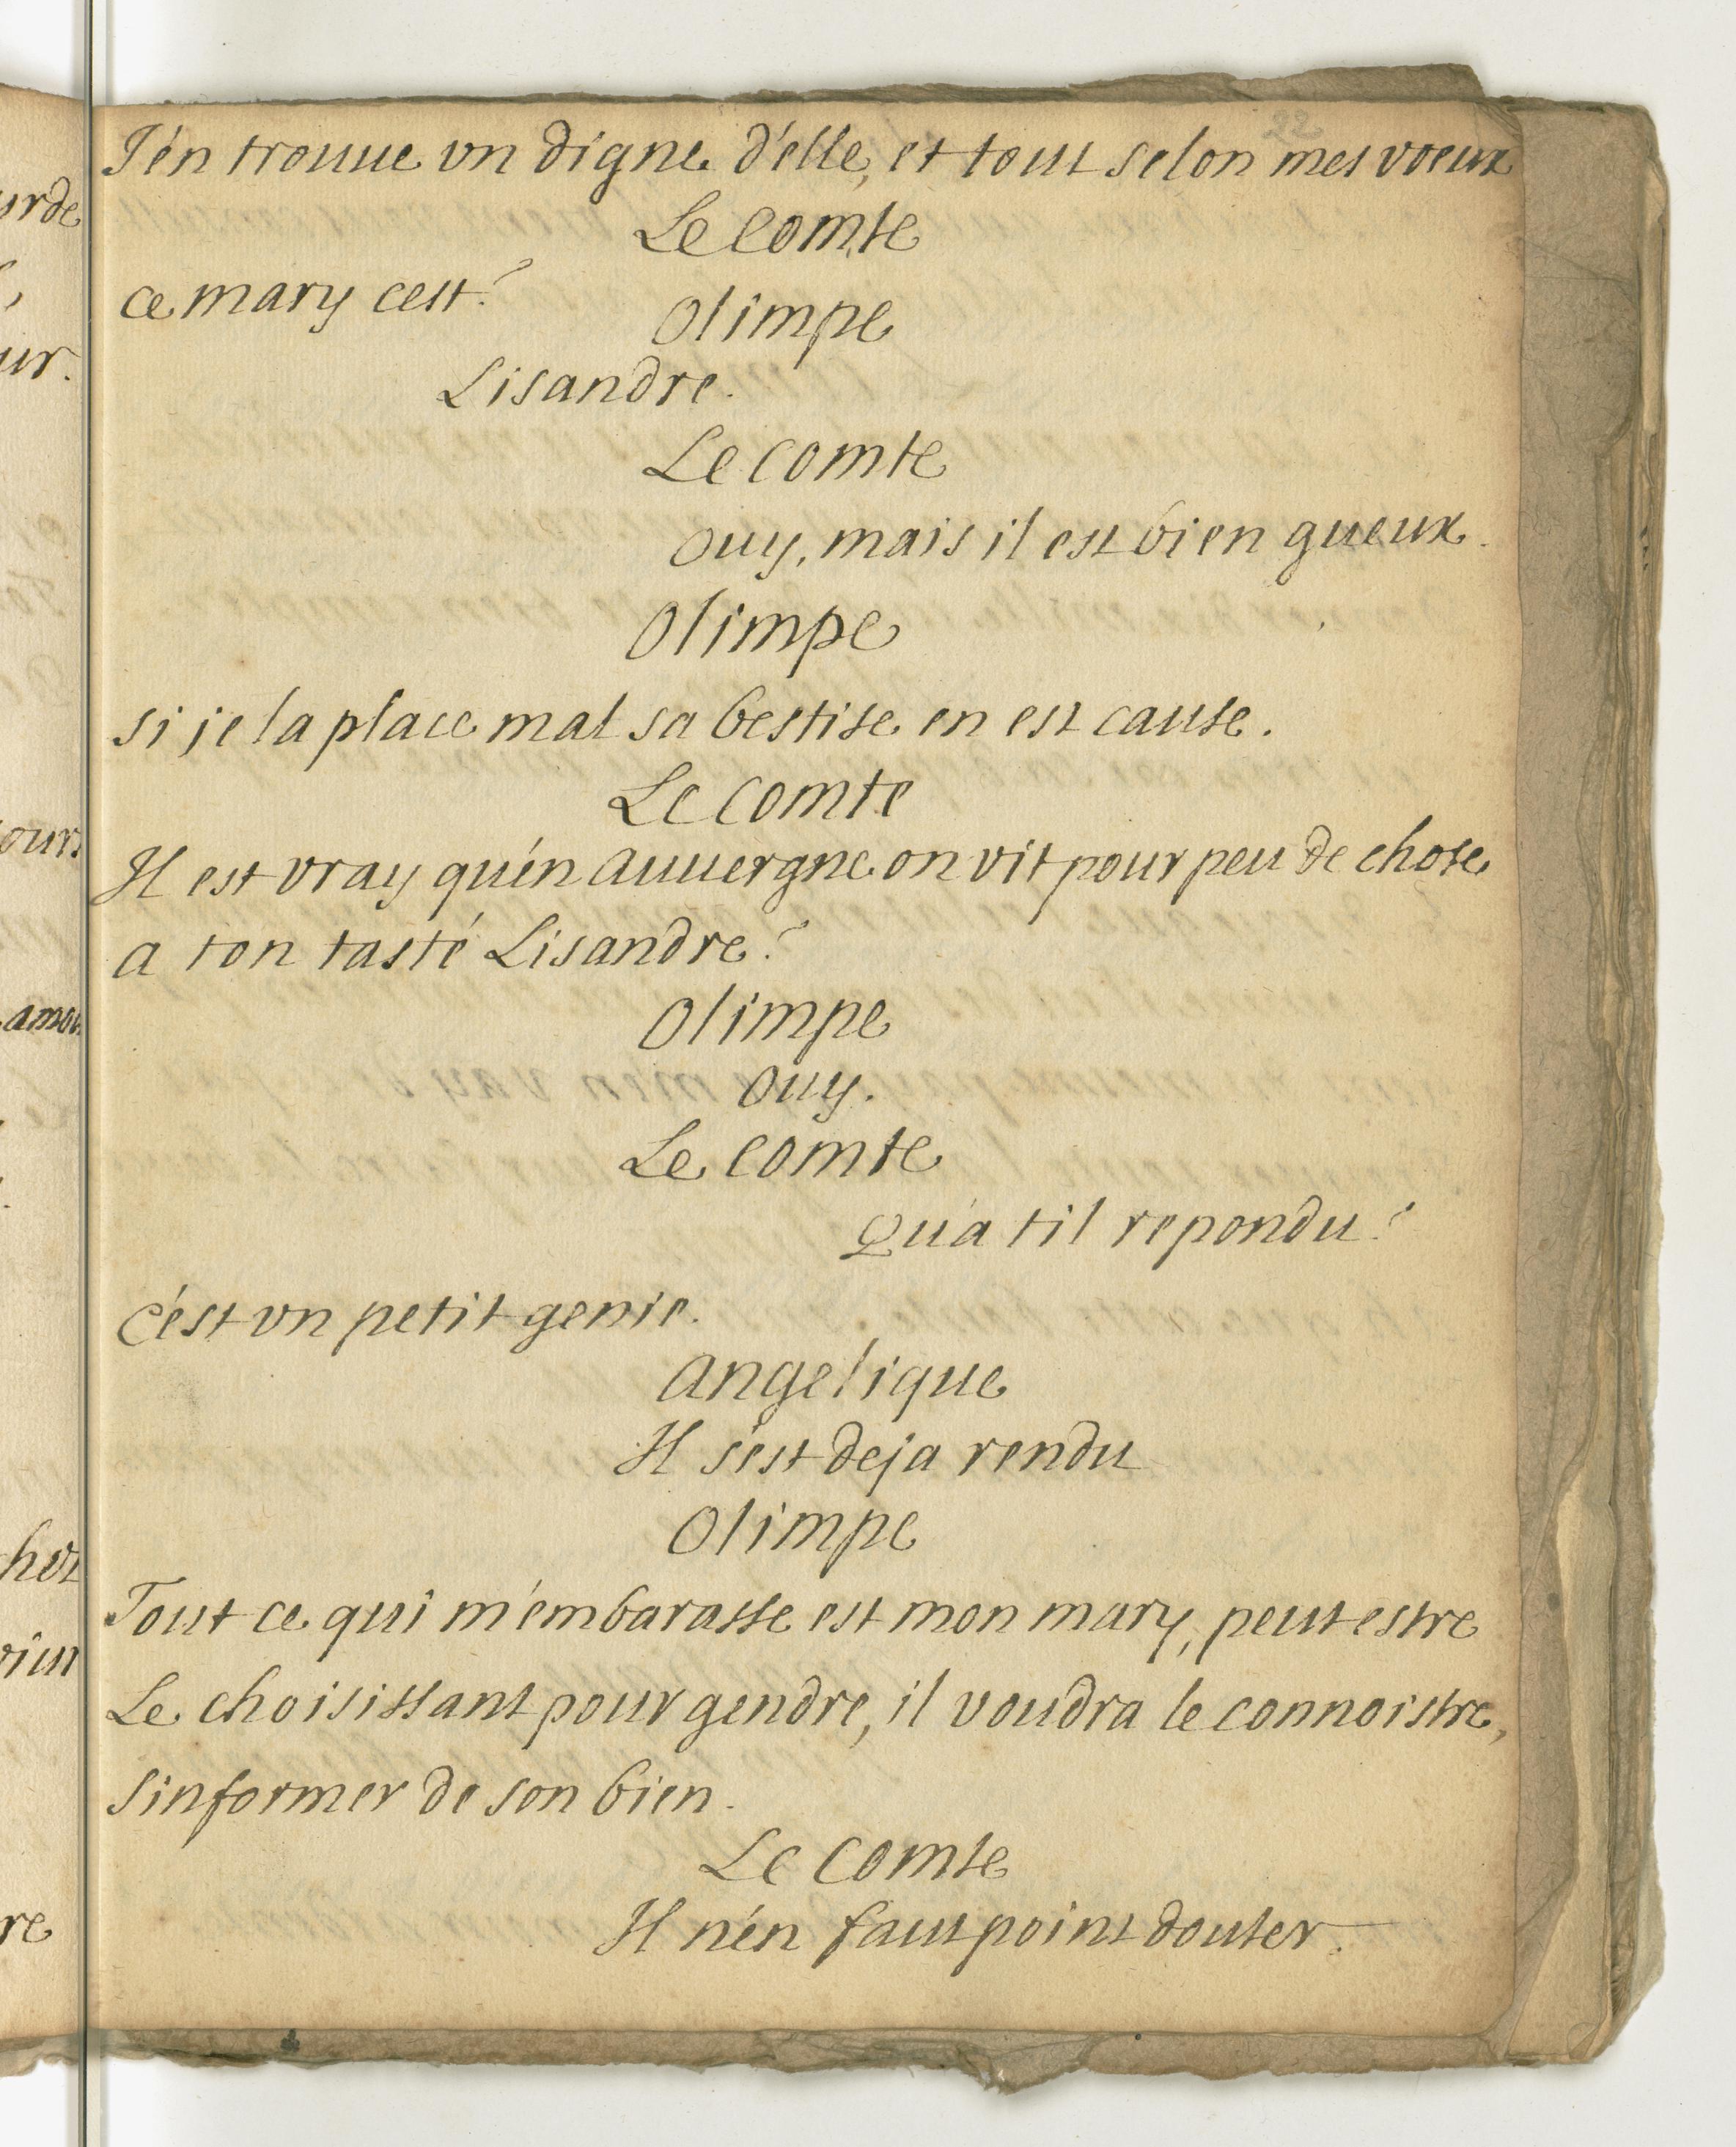 22
J'én trouue vn digne d'elle, et tout selon mes voeux
Le comte
ce mary cest?
Olimpe
Lisandre.
Le comte
ouy, mais il est bien gueux.
Olimpe
si je la place mal sa bestise en est cause.
Le comte
Il est vray qu'én auuergne on vit pour peu de chose
a ton tasté Lisandre?
Olimpe
ouy.
Le comte
Qu'a til repondu?
c'ést vn petit genie.
angelique
Il s'est deja rendu
Olimpe
Tout ce qui m'embarasse est mon mary, peut estre
Le choisissant pour gendre, il voudra le connoistre,
s'informer de son bien.
Le comte
Il n'én faut point douter.